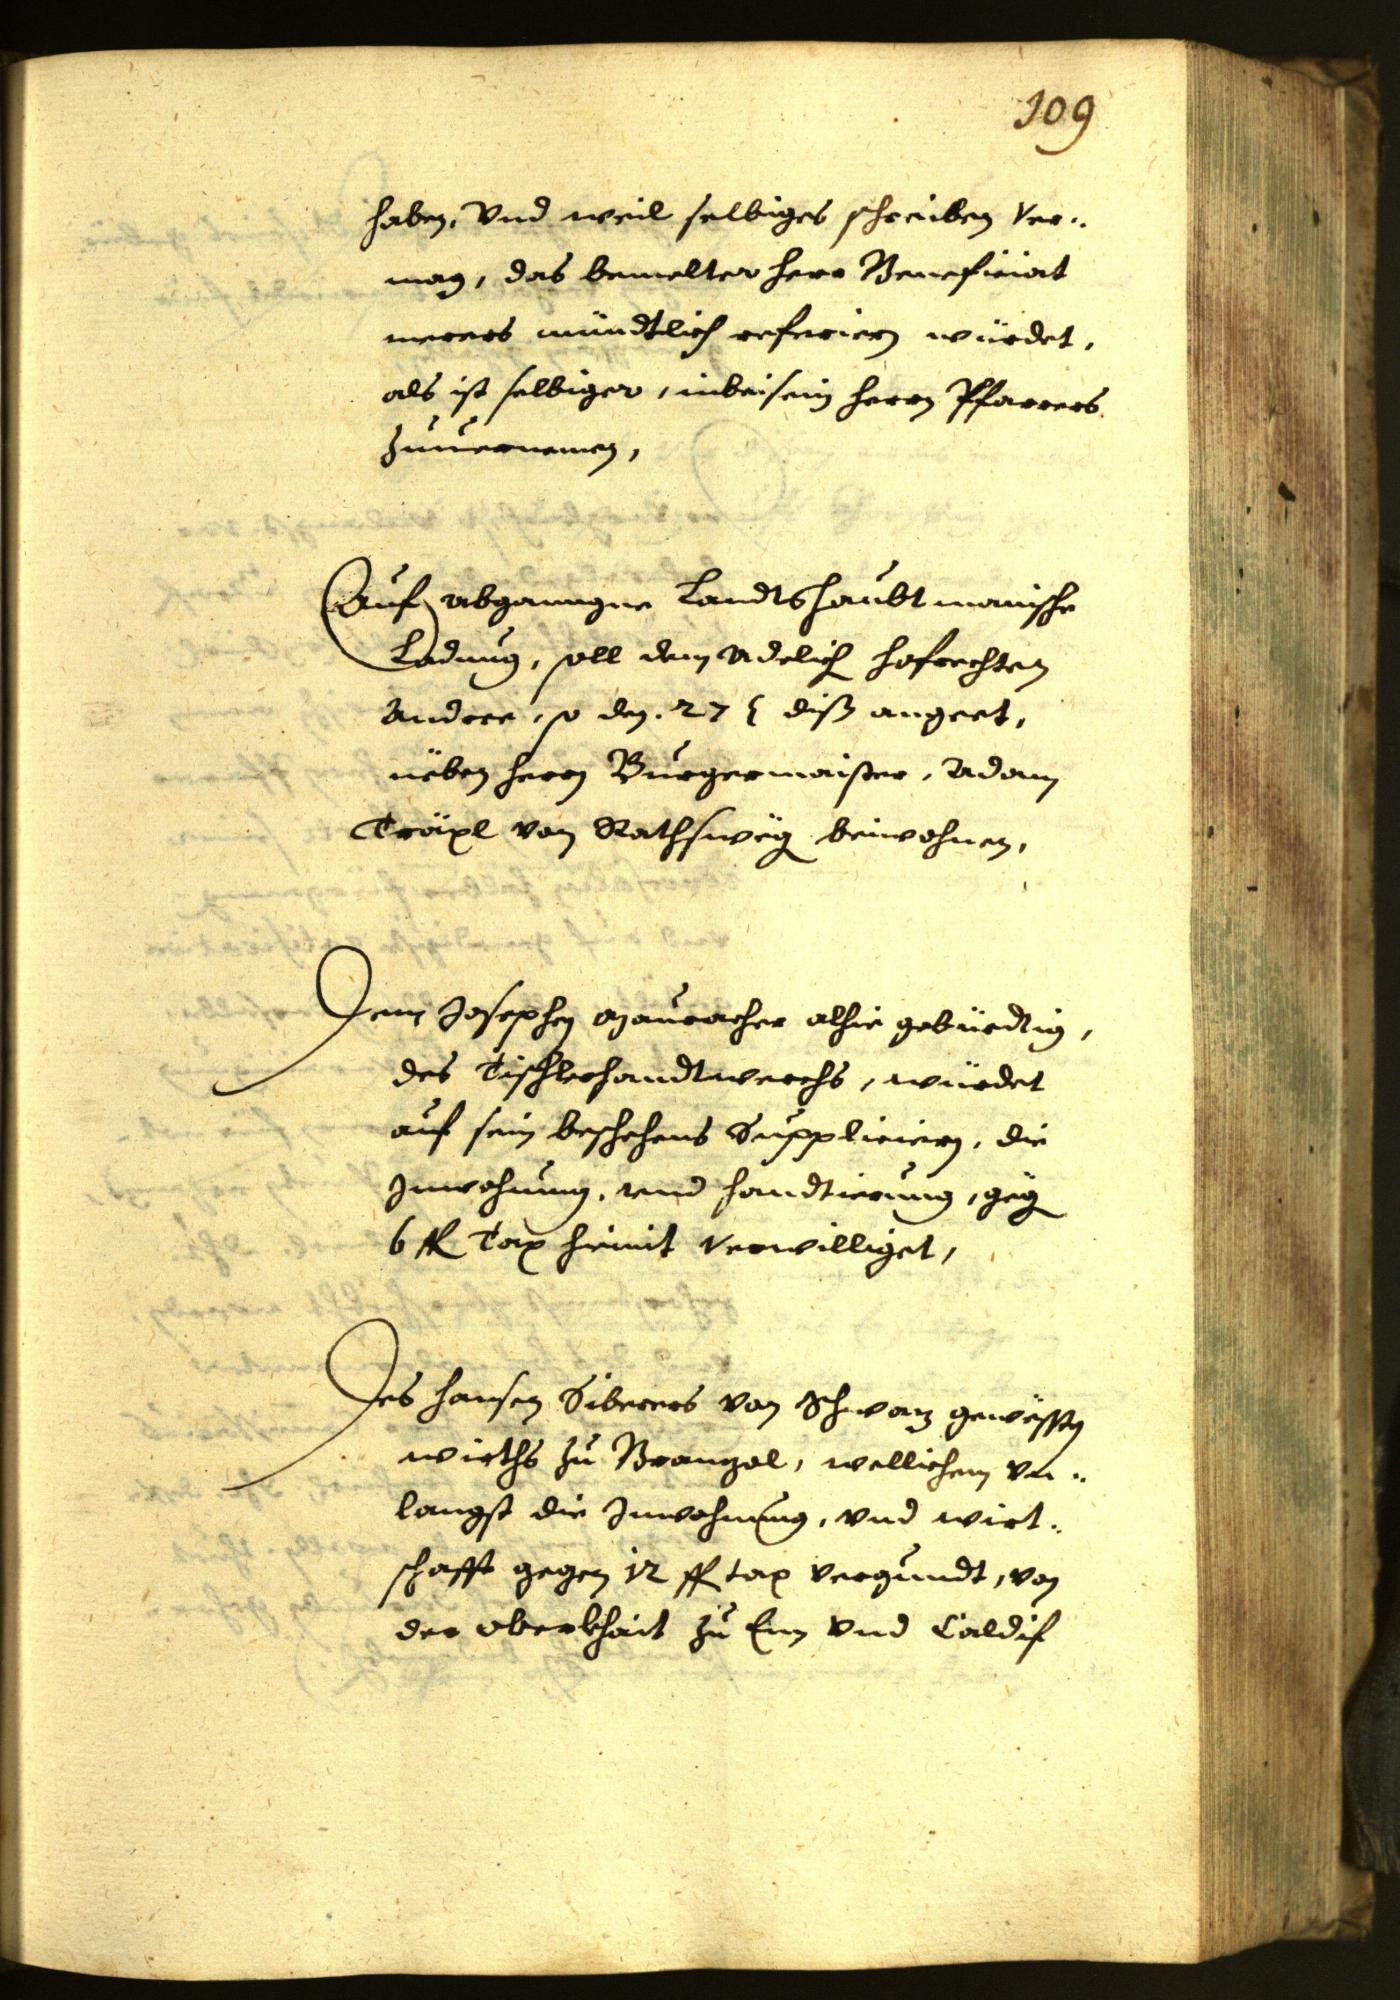 109
haben, Vnd weil selbiges schreiben Ver..
mag, das bemelter herr Beneficiat
merers mündtlich referiern würdet,
als ist selbiger, inbeisein herrn Pfarrers
zuuernemen,
Auf abganngne Landtshaubtmanische
Ladung, soll dem Adelich hofrechten
Andree, so den. 27 diß angeet,
nëben herrn Burgermaister, Adam
Träxl von Rathswëg beiwohnen,
Dem Josephen Mauracher alhie gebürdtig,
des Tischlerhandtwerchs, würdet
auf sein beschehens Suppliciern, die
Inwohnung, vnd handtierung, gëg
6 fl Tax hiemit Verwilliget,
Des hansen Siberers von Schwaz gewësten
wirths zu Branzol, wellichem vn..
langst die Inwohnung, vnd wirt..
schafft gegen 12 fl tax vergundt, von
der oberkhait zu Enn Vnd Caldif